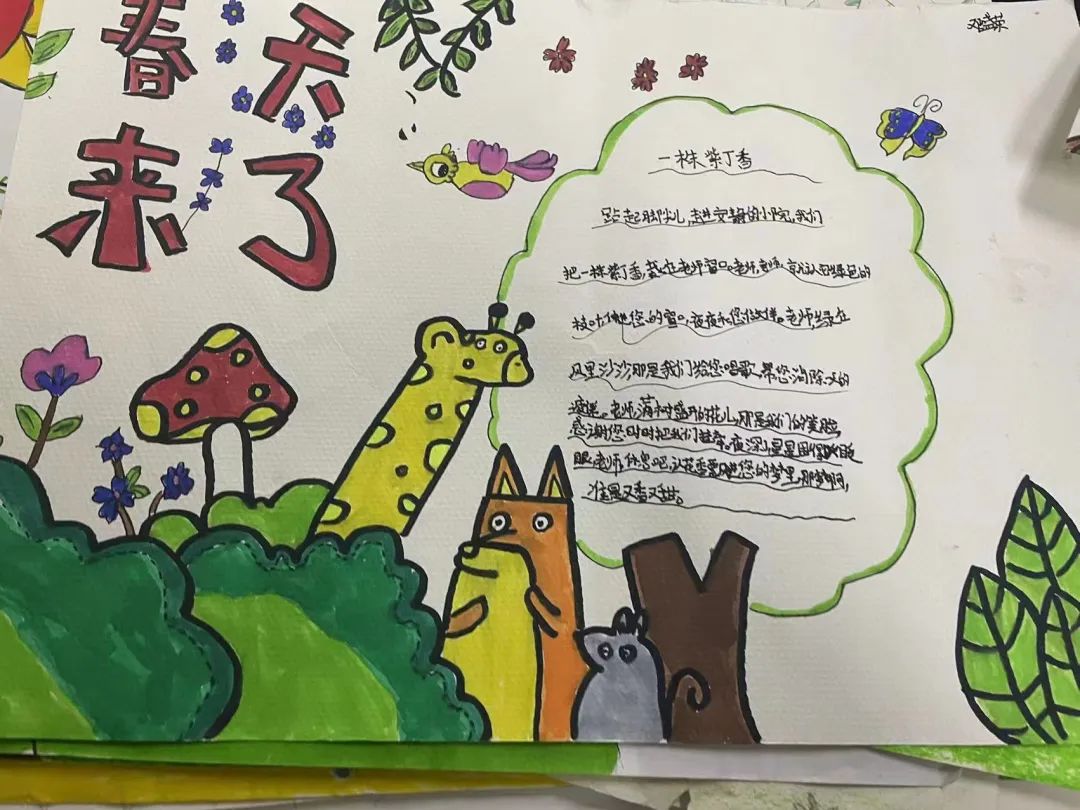 春天
来了
一株紫丁香
踮起脚尖儿,走进安静的小院,我们
把一株紫丁香,栽在老师窗口。老师,老师,就让绿色的
枝叶伸进您的窗口,夜夜和您作伴。老师,绿叶在
风里沙沙那是我们给您唱歌,帮您消除一天的
疲倦。老师,满树盛开的花儿,那是我们的笑脸
感谢您时时把我们牵挂。夜深了,星星困得眨
眼,老师,休息吧,让花香飘进您的梦里,那梦啊,
准是又香又甜。